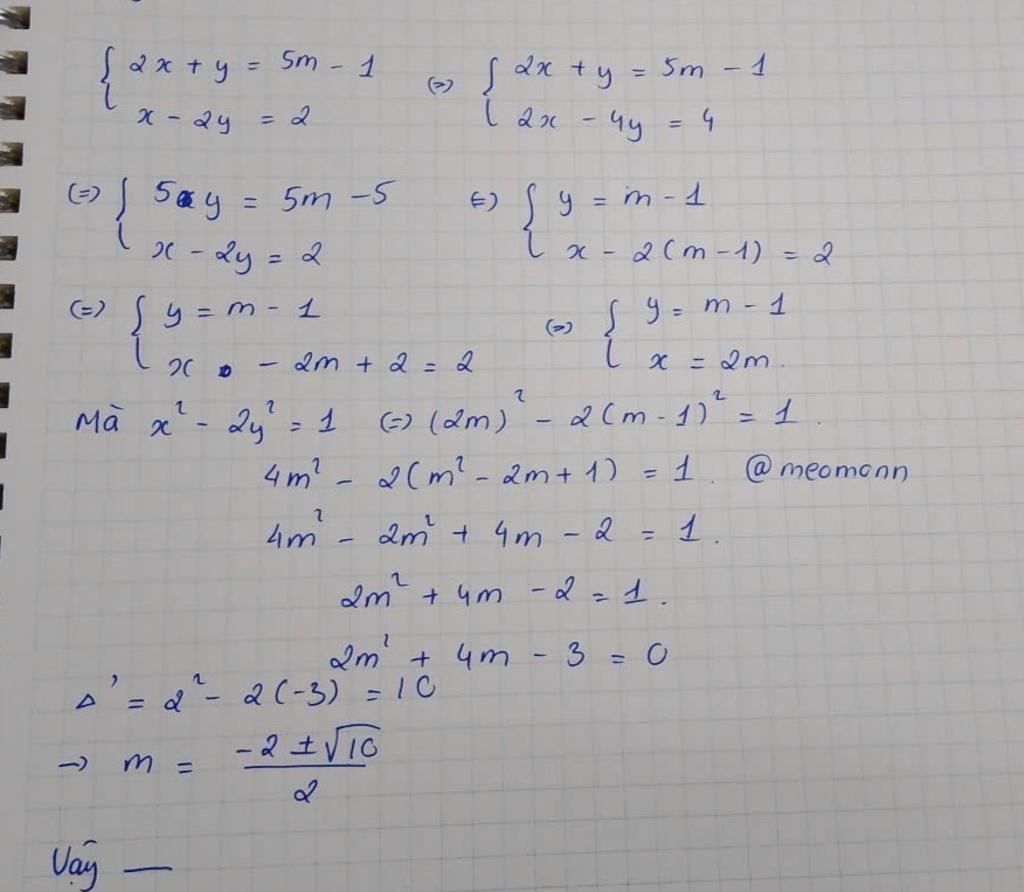 { 2x + y = 5m - 1 (=) { 2x + y = 5m - 1
x - 2y = 2 2x - 4y = 4
(=) { 5y = 5m - 5 (=) { y = m - 1
x - 2y = 2 x - 2(m - 1) = 2
(=) { y = m - 1 (=) { y = m - 1
x - 2m + 2 = 2 x = 2m.
Mà x² - 2y² = 1 (=) (2m)² - 2(m - 1)² = 1.
4m² - 2(m² - 2m + 1) = 1. @meomonn
4m² - 2m² + 4m - 2 = 1.
2m² + 4m - 2 = 1.
2m² + 4m - 3 = 0
Δ' = 2² - 2(-3) = 10
→ m = (-2 ± √10)/2
Vậy —